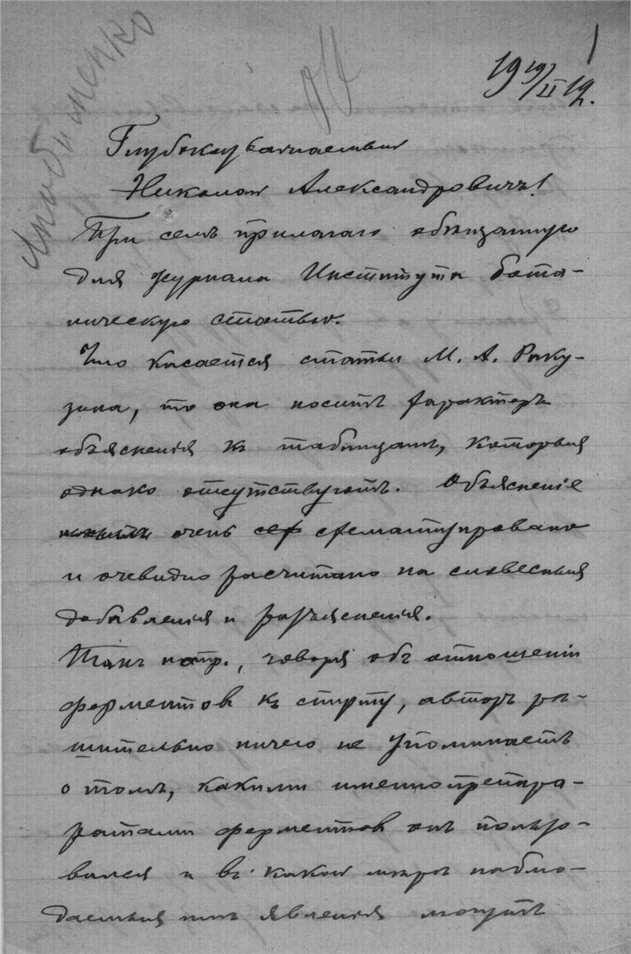 19 19/II 19.
Глубокоуважаемый
Николай Александровичъ!
При семъ прилагаю обѣщанную
для журнала Института бота-
ническую статью.
Что касается статьи М. А. Раку-
зина, то она носитъ характеръ
объясненія къ таблицамъ, которыя
однако отсутствуютъ. Объясненіе
очень схематизировано
и очевидно расчитано на словесныя
добавленія и разъясненія.
Такъ напр., говоря объ отношеніи
ферментовъ къ спирту, авторъ рѣ-
шительно ничего не упоминаетъ
о томъ, какими именно препара-
ратами ферментовъ онъ пользо-
вался и въ какой мѣрѣ наблю-
даемыя имъ явленія могутъ